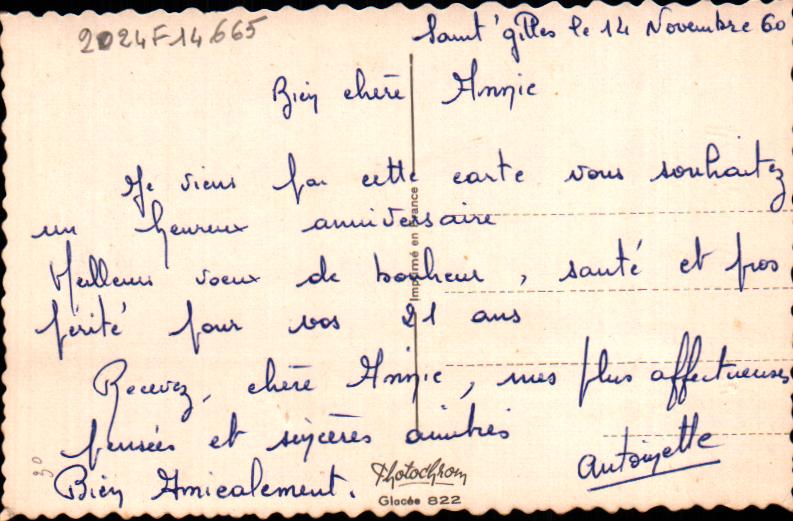 2024F14665
Saint'gilles le 14 Novembre 60
Bien chère Annie
Je viens par cette carte vous souhaitez
un heureux anniversaire
Meilleurs voeux de bonheur, santé et pros
périté pour vos 21 ans
Recevez, chère Annie, mes plus affectueuses
pensées et sincères amitiés
Antoinette
Bien Amicalement.
Imprimé en France
Photochrom
Glacée 822
30